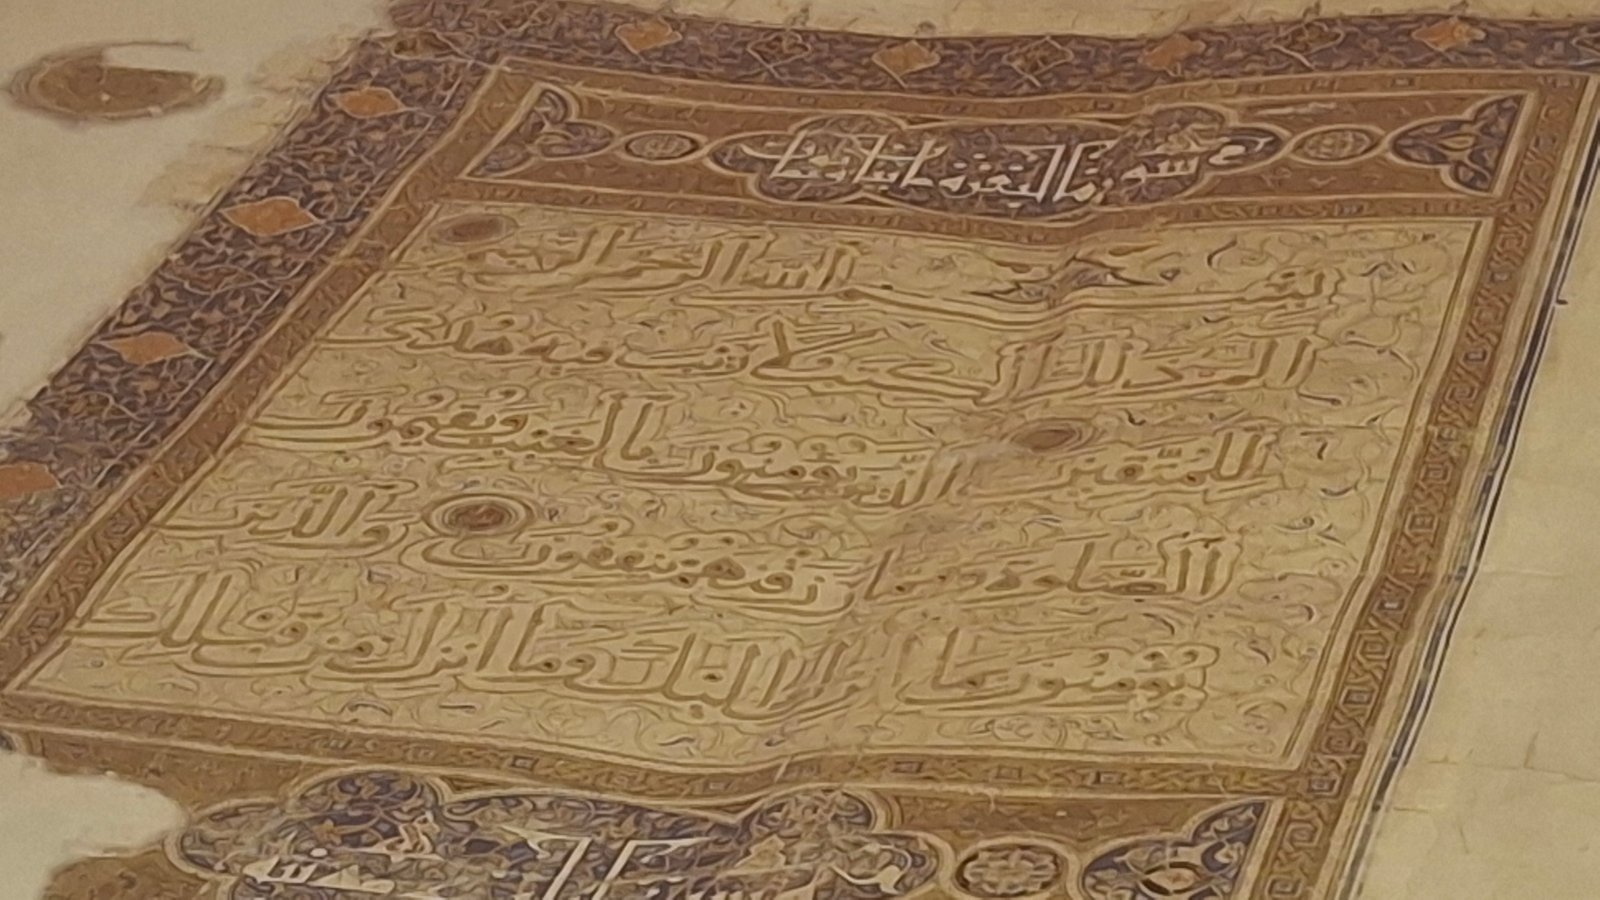 سورة البقرة مائتان
بسم الله الرحمن
الم ذلك الكتاب لا ريب فيه هدى
للمتقين الذين يؤمنون بالغيب ويقيمون
الصلوة ومما رزقنهم ينفقون والذين
يؤمنون بما انزل اليك وما انزل من قبلك